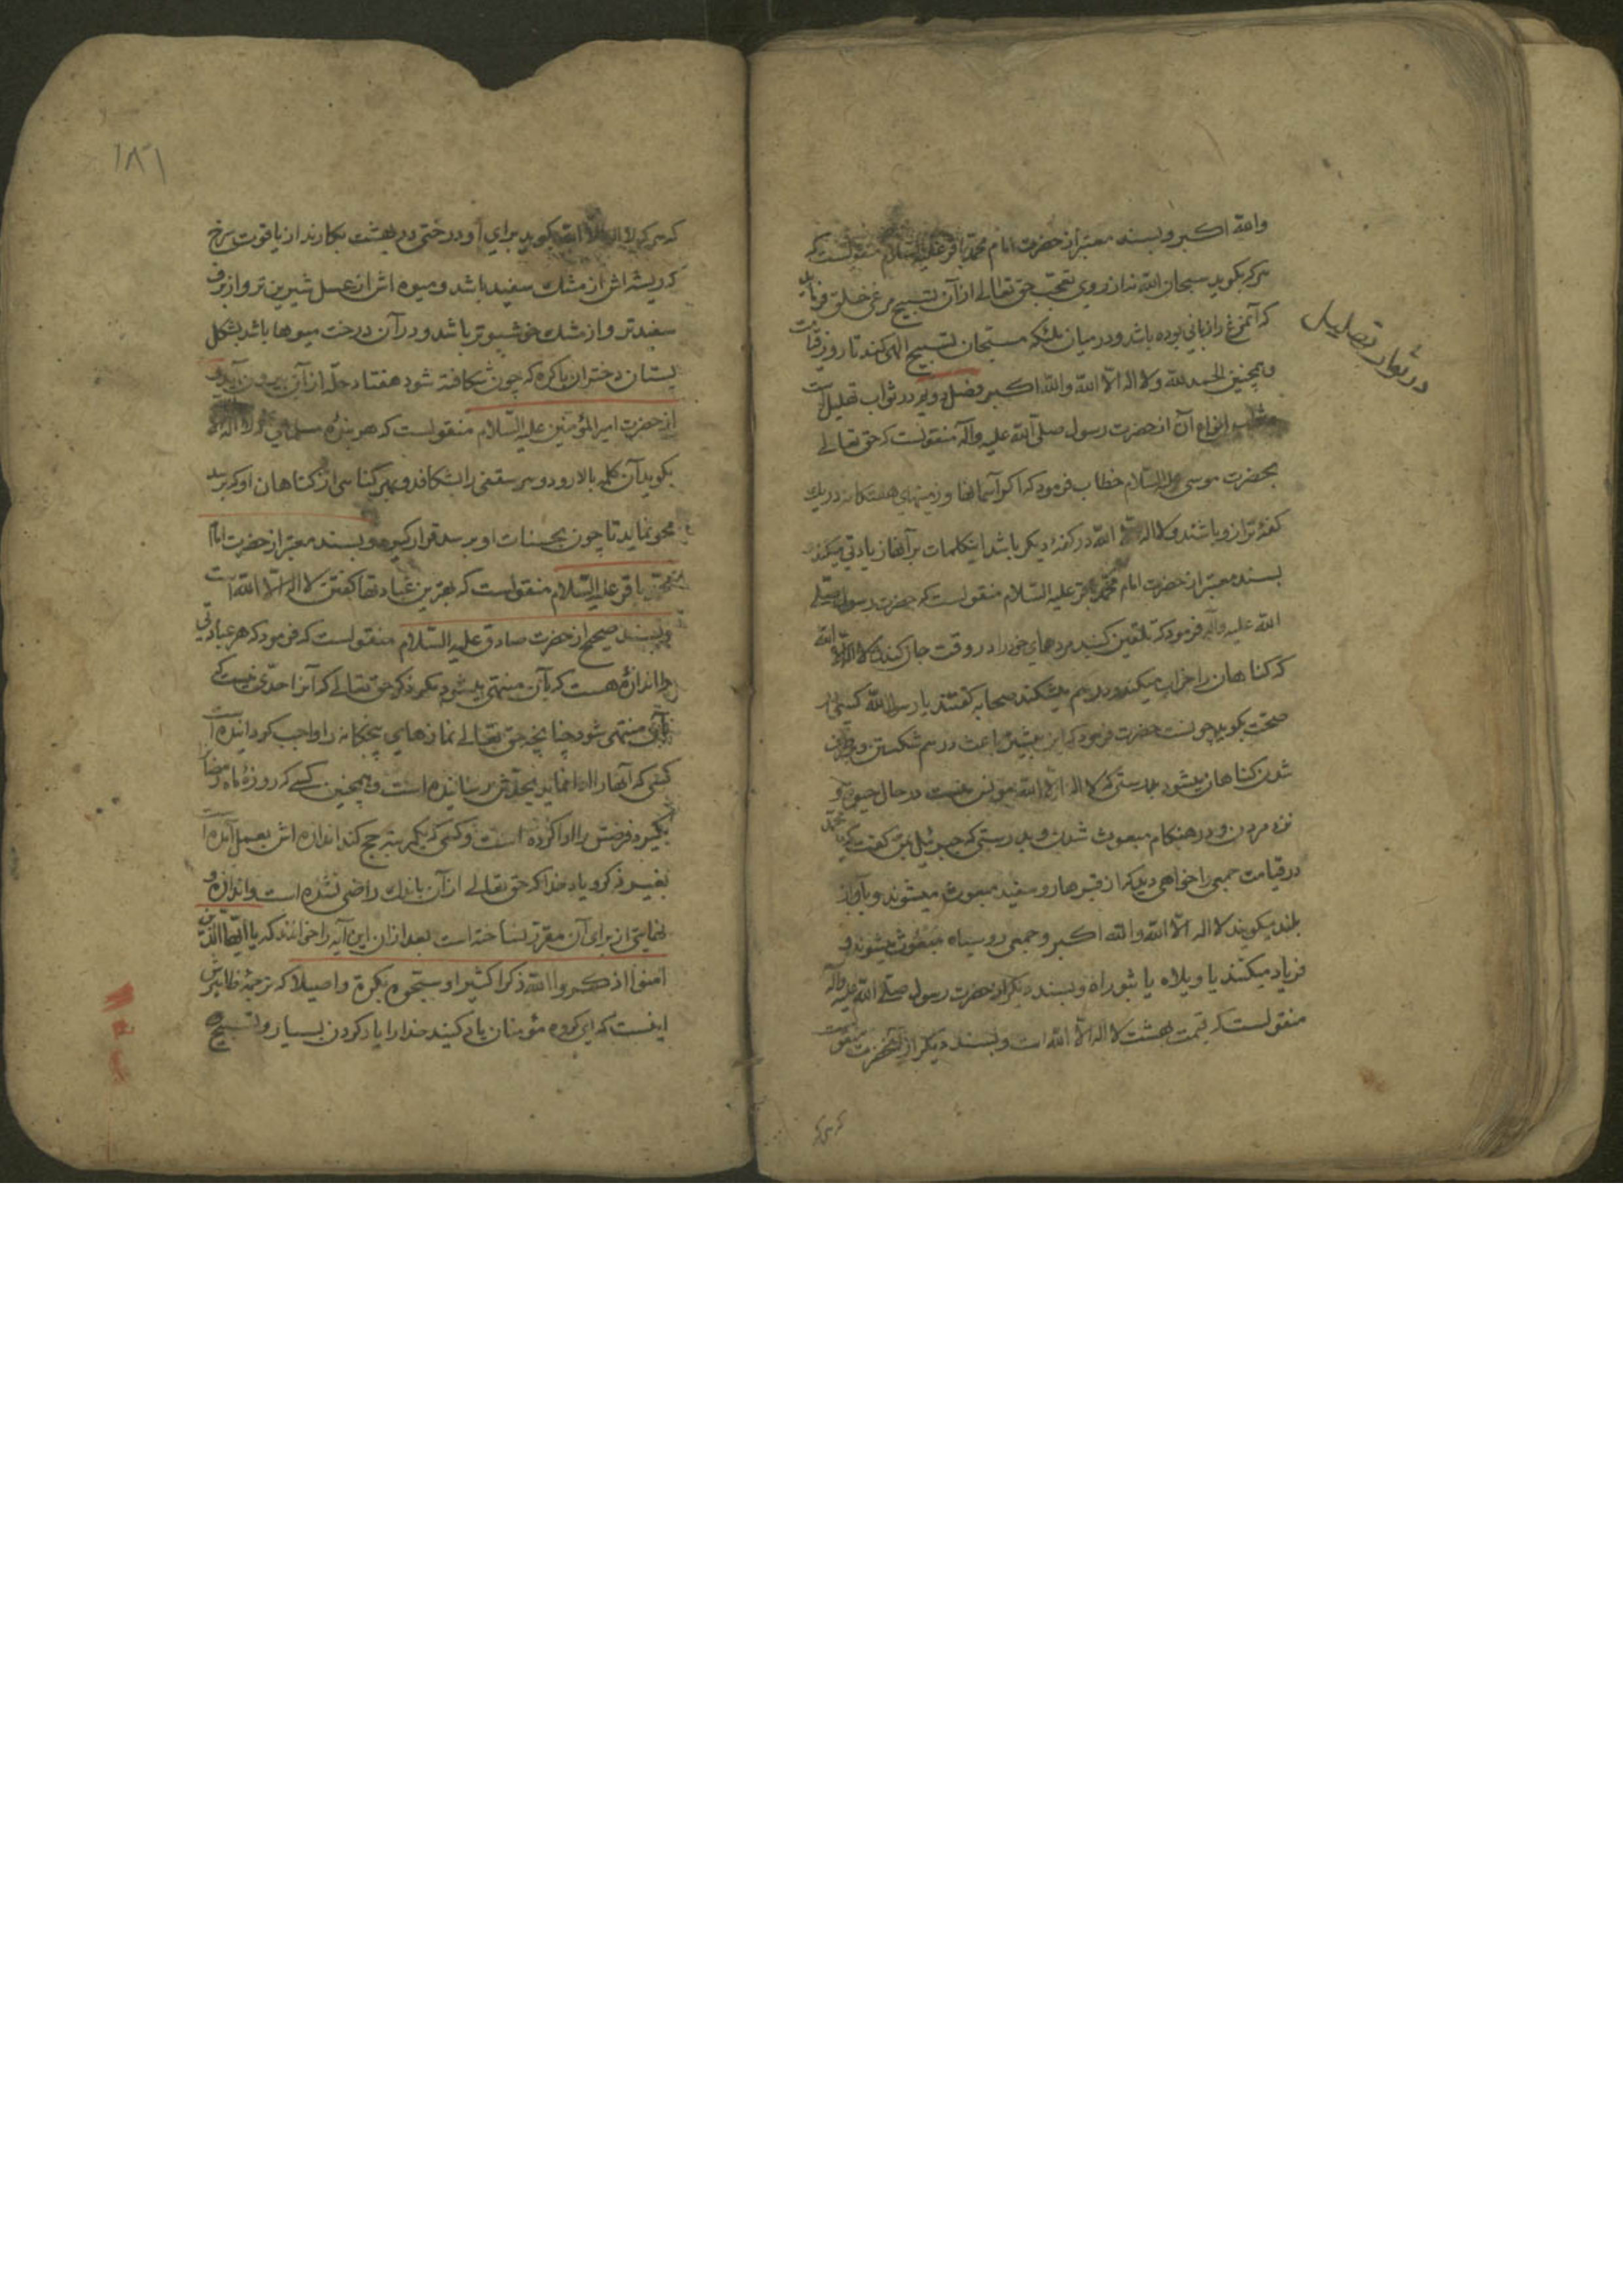 والله اکبر و بسند معتبر از حضرت امام محمد باقر علیه السلام منقولست که
هر که بکوید سبحان الله نه از روی تعجب حق تعالی از آن تسبیح مرغی خلق فرماید
که آنمرغ را زبانی بوده باشد و در میان ملئکه مسبحان تسبیح الهی کند تا روز قیامت
و همچنین الحمد لله و لا اله الا الله و الله اکبر فضل در ثواب تهلیل است
انواع آن از حضرت رسول صلی الله علیه وآله منقولست که حق تعالی
بحضرت موسی علیه السلام خطاب فرمود که اکر آسمانها و زمینهای هفتکانه در یک
کفهٔ ترازو باشند و لا اله الا الله در کفهٔ دیکر باشد اینکلمات بر آنها زیادتی میکند
بسند معتبر از حضرت امام محمد باقر علیه السلام منقولست که حضرت رسول صلی
الله علیه وآله فرمود که تلقین کنید مردهای خود را در وقت جان کندن لا اله الا الله
که کناهان را خراب میکند و در هم میشکند صحابه کفتند یا رسول الله کسی که در
صحت بکوید چونست حضرت فرمود که این بیشتر باعث در هم شکستن و
شدن کناهان میشود بدرستی که لا اله الا الله مونس است در حال حیوة و
نزد مردن و در هنکام مبعوث شدن و بدرستی که جبرئیل بمن کفت که یا محمد
در قیامت جمعی را خواهی دید که از قبرها رو سفید مبعوث میشوند و بآواز
بلند میکویند لا اله الا الله و الله اکبر و جمعی رو سیاه مبعوث میشوند و
فریاد میکنند یا ویلاه یا ثبوراه و بسند دیکر از حضرت رسول صلی الله علیه وآله
منقولست که قیمت بهشت لا اله الا الله است و بسند دیکر از آنحضرت منقولست
که هر که
در ثواب تهلیل
۱۸۶
که هر که لا اله الا الله بکوید برای او درختی در بهشت بکارند از یاقوت سرخ
که ریشه اش از مشک سفید باشد و میوه اش از عسل شیرین تر و از برف
سفیدتر و از مشک خوشبوتر باشد و در آن درخت میوها باشد بشکل
پستان دختران باکره که چون شکافته شود هفتاد حله از آن بیرون آید و
از حضرت امیر المؤمنین علیه السلام منقولست که هر بندهٔ مسلمانی که لا اله الا الله
بکوید آن کلمه بالا رود و هر سقفی را بشکافد و بهر کناهی از کناهان او که برسد
محو نماید تا چون بحسنات او برسد قرار کیرد و بسند معتبر از حضرت امام
محمد باقر علیه السلام منقولست که بهترین عبادتها کفتن لا اله الا الله است
و بسند صحیح از حضرت صادق علیه السلام منقولست که فرمود که هر عبادتی
را اندازهٔ هست که بآن منتهی میشود مکر ذکر حق تعالی که آنرا حدی نیست که
بآن منتهی شود چنانچه حق تعالی نمازهای پنجکانه را واجب کردانیده است
کسی که آنها را ادا نماید بحدش رسانیده است و همچنین کسی که روزهٔ ماه رمضان
بکیرد فرضش را ادا کرده است و کسی که یکمرتبه حج کند اندازه اش بعمل آمده است
بغیر ذکر و یاد خدا که حق تعالی از آن باندک راضی نشده است و اندازه و
نهایتی از برای آن مقرر نساخته است بعد از آن این آیه را خواندند که یا ایها الذین
آمنوا اذکروا الله ذکرا کثیرا و سبحوه بکرة و اصیلا که ترجمهٔ ظاهرش
اینست که ای کروه مؤمنان یاد کنید خدا را یاد کردن بسیار و تسبیح